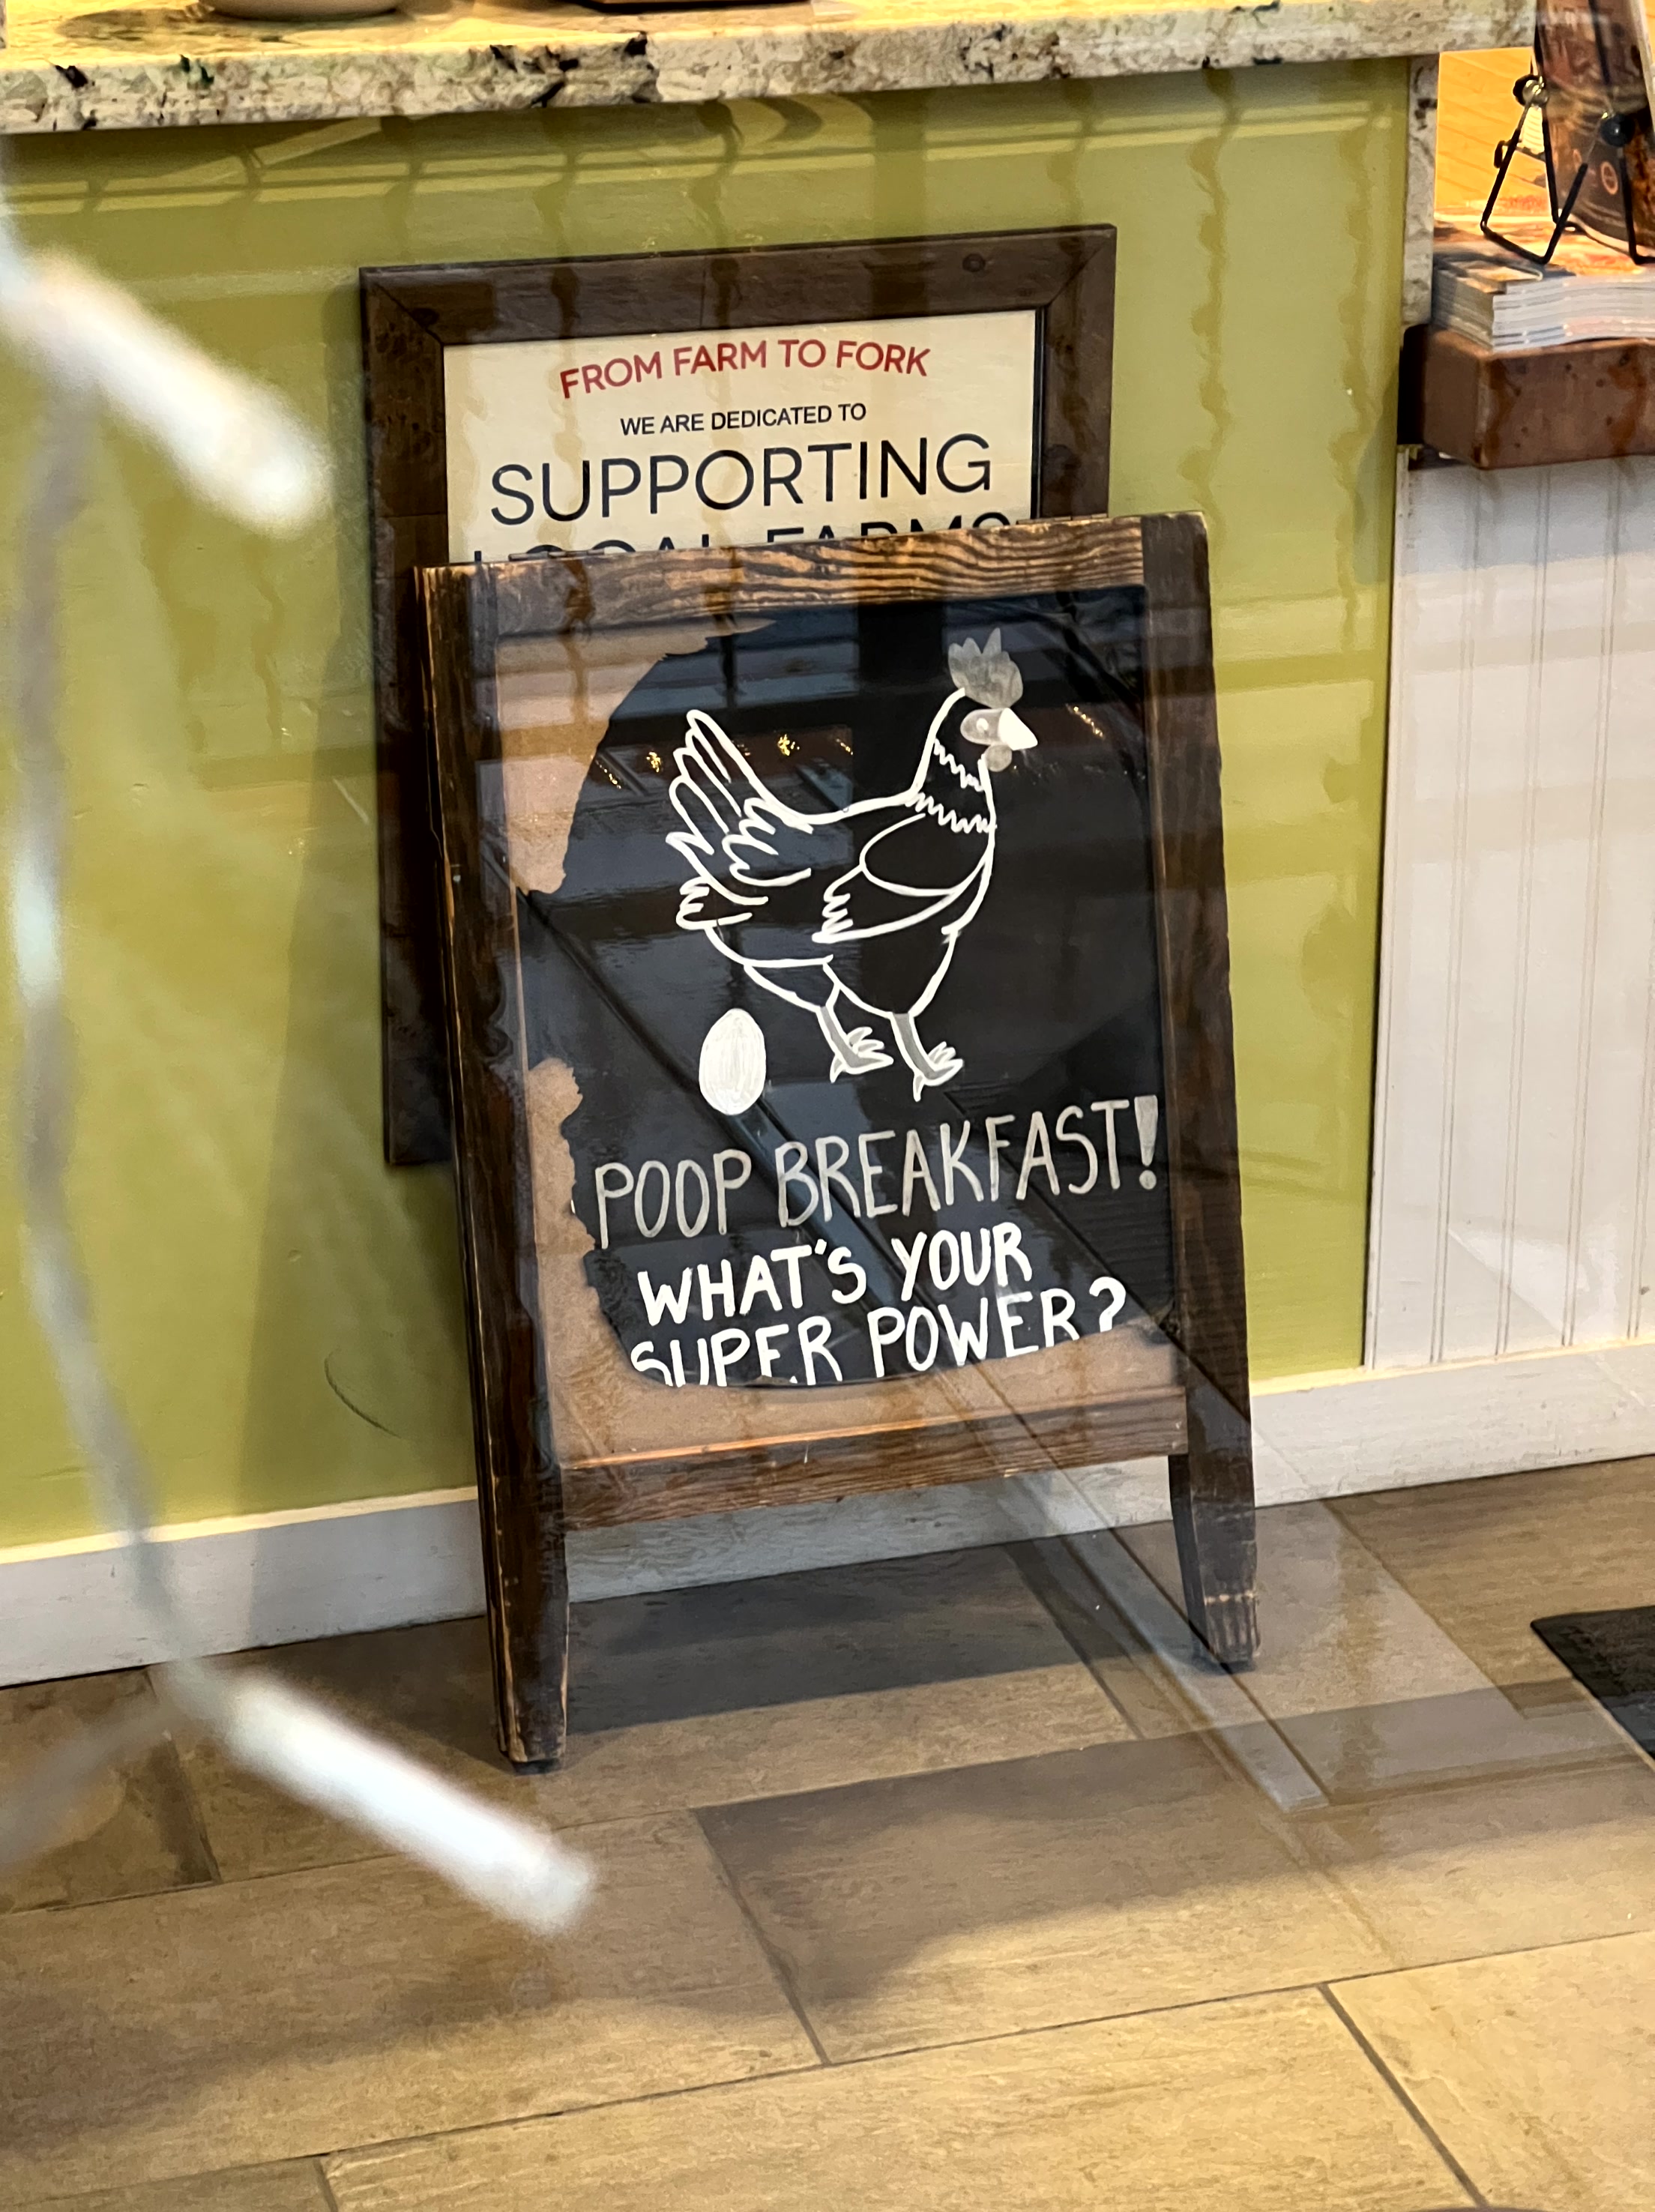 FROM FARM TO FORK
WE ARE DEDICATED TO
SUPPORTING
LOCAL FARMS
POOP BREAKFAST!
WHAT'S YOUR
SUPER POWER?